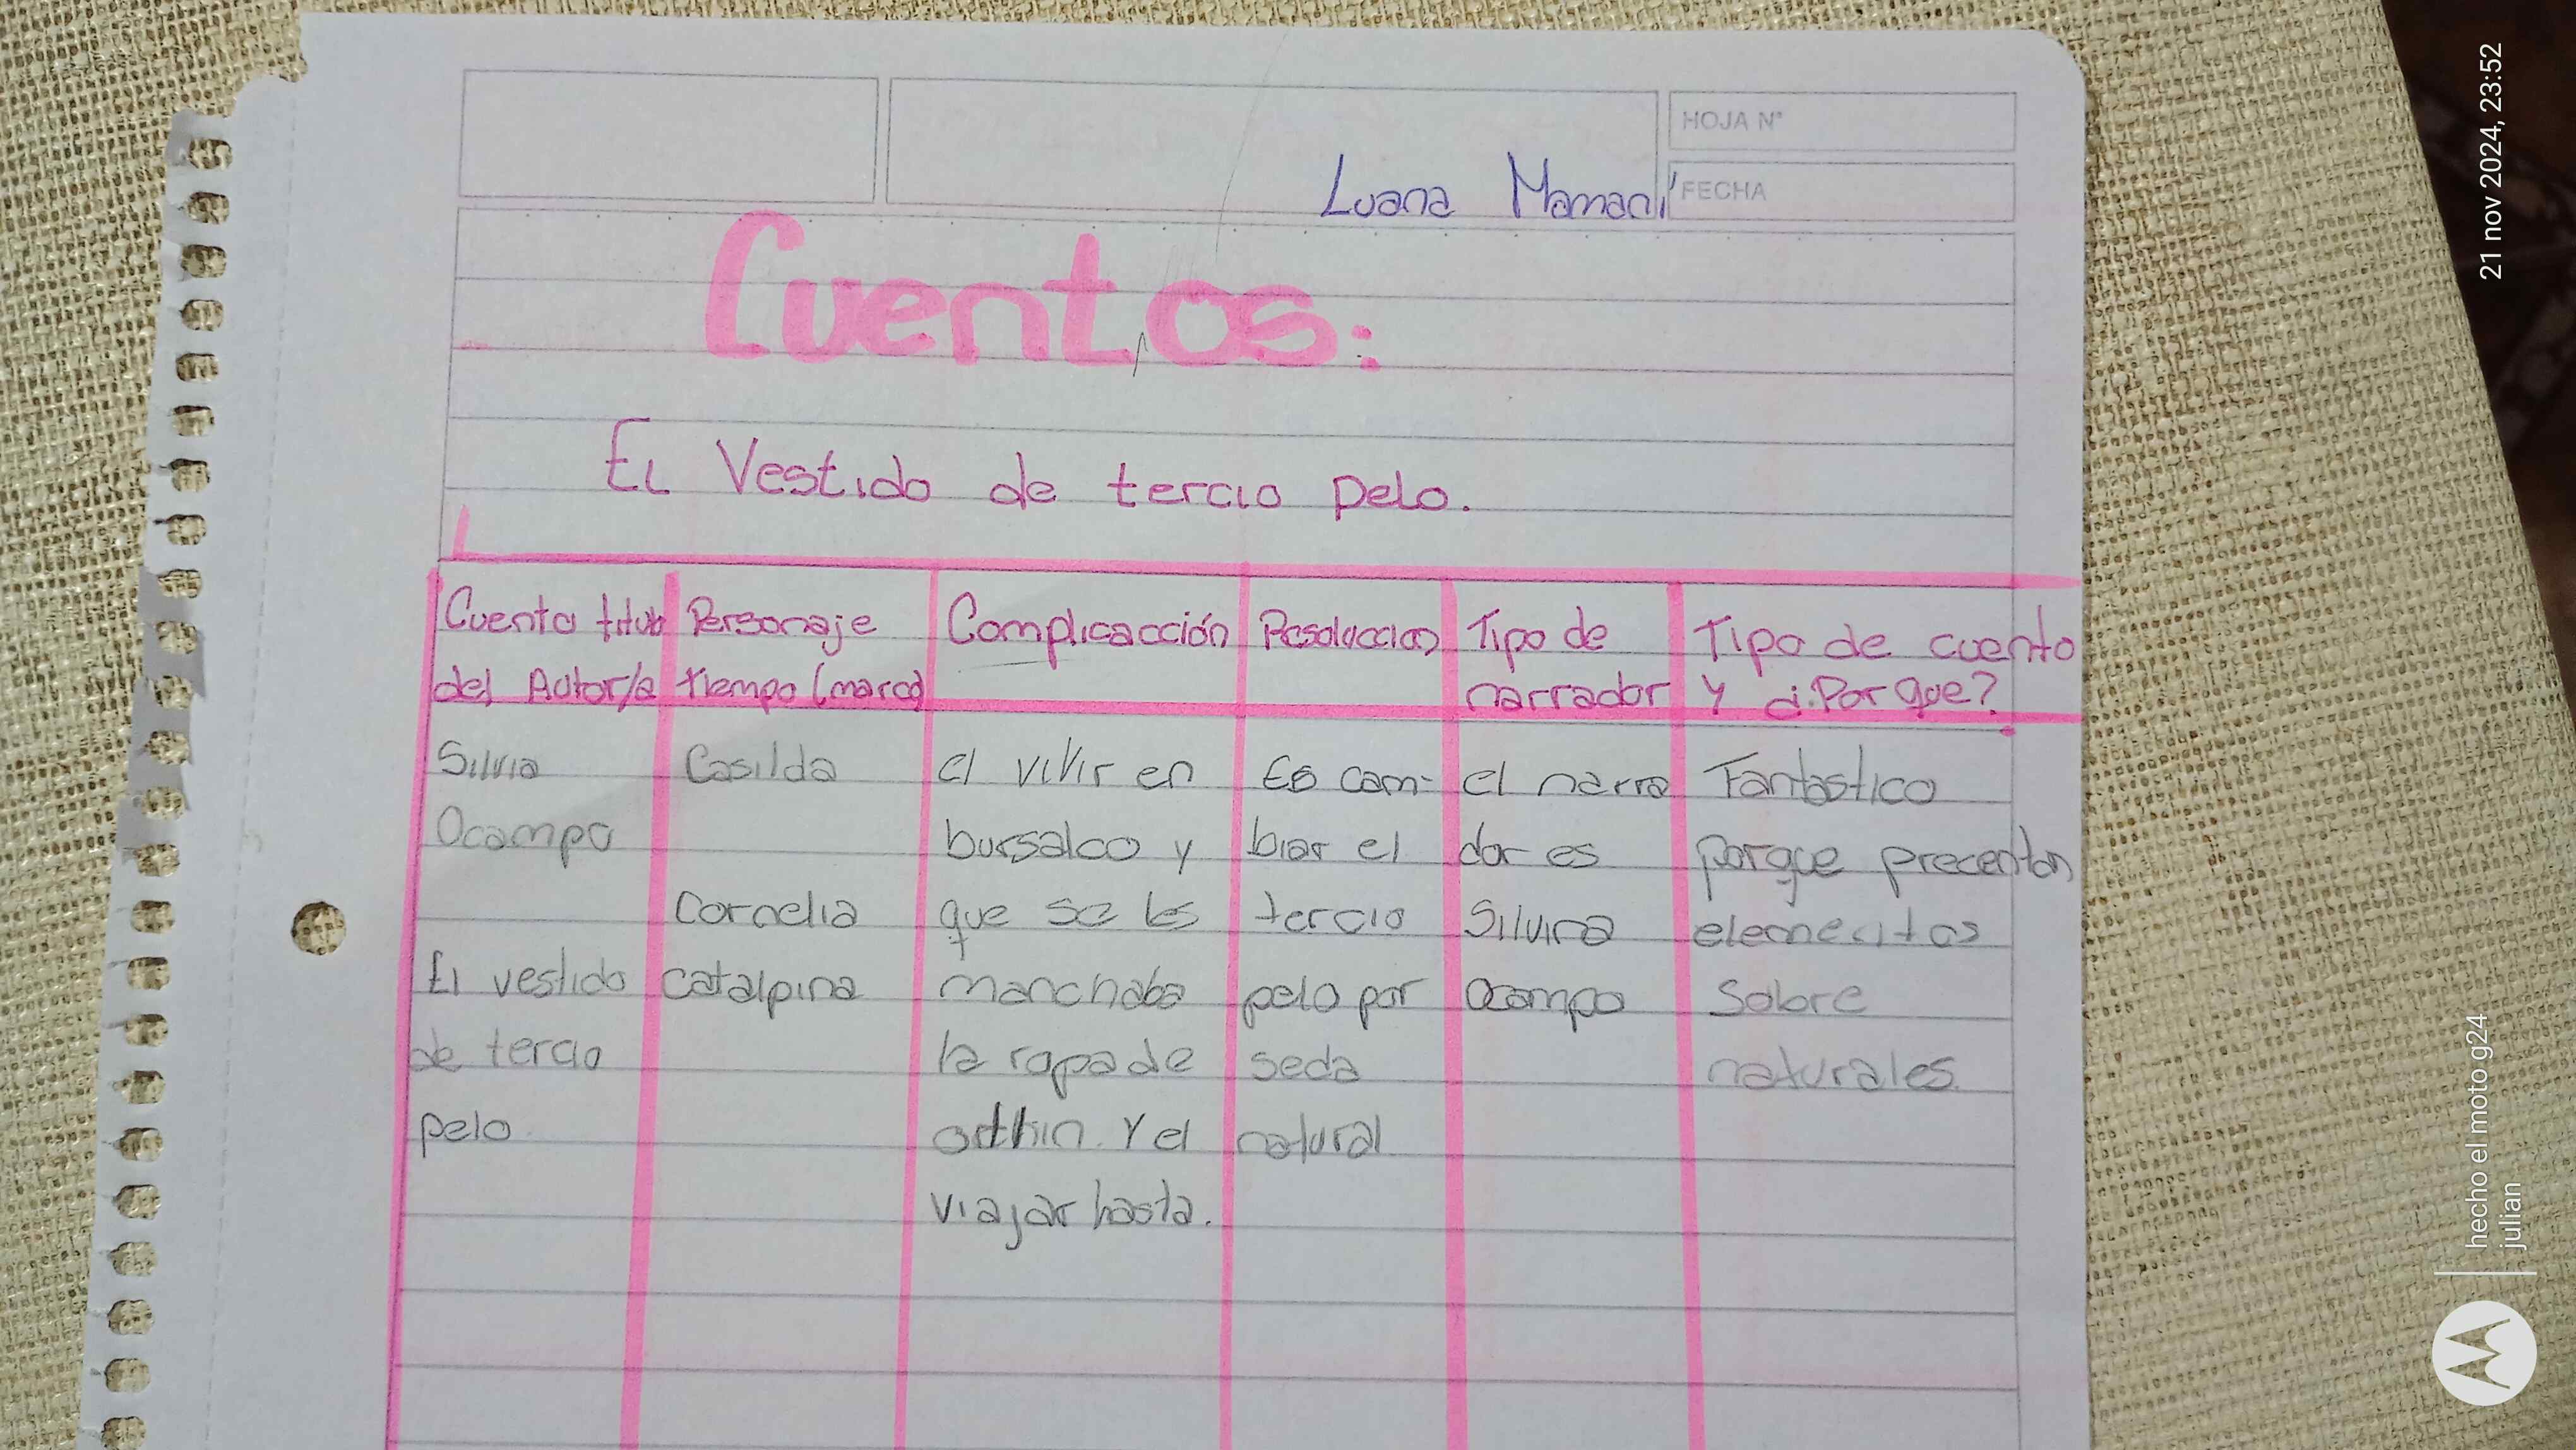 HOJA N°
Luana Mamaní
FECHA
Cuentos:
El Vestido de tercio pelo.
Cuento titulo del Autor/a
Personaje tiempo (marco)
Complicacción
Resoluccion
Tipo de narrador
Tipo de cuento y ¿Por que?
Silvia
Ocampo
El vestido
de tercio
pelo
Casilda
Cornelia
catalpina
el vivir en
bursalco y
que se les
manchaba
la ropa de
y el
viajar hasta.
Es cam-
biar el
tercio
pelo por
seda
natural
el narra
dor es
Silvina
Ocampo
Fantastico
porque precentan
elementos
sobre
naturales.
21 nov 2024, 23:52
hecho el moto g24
julian